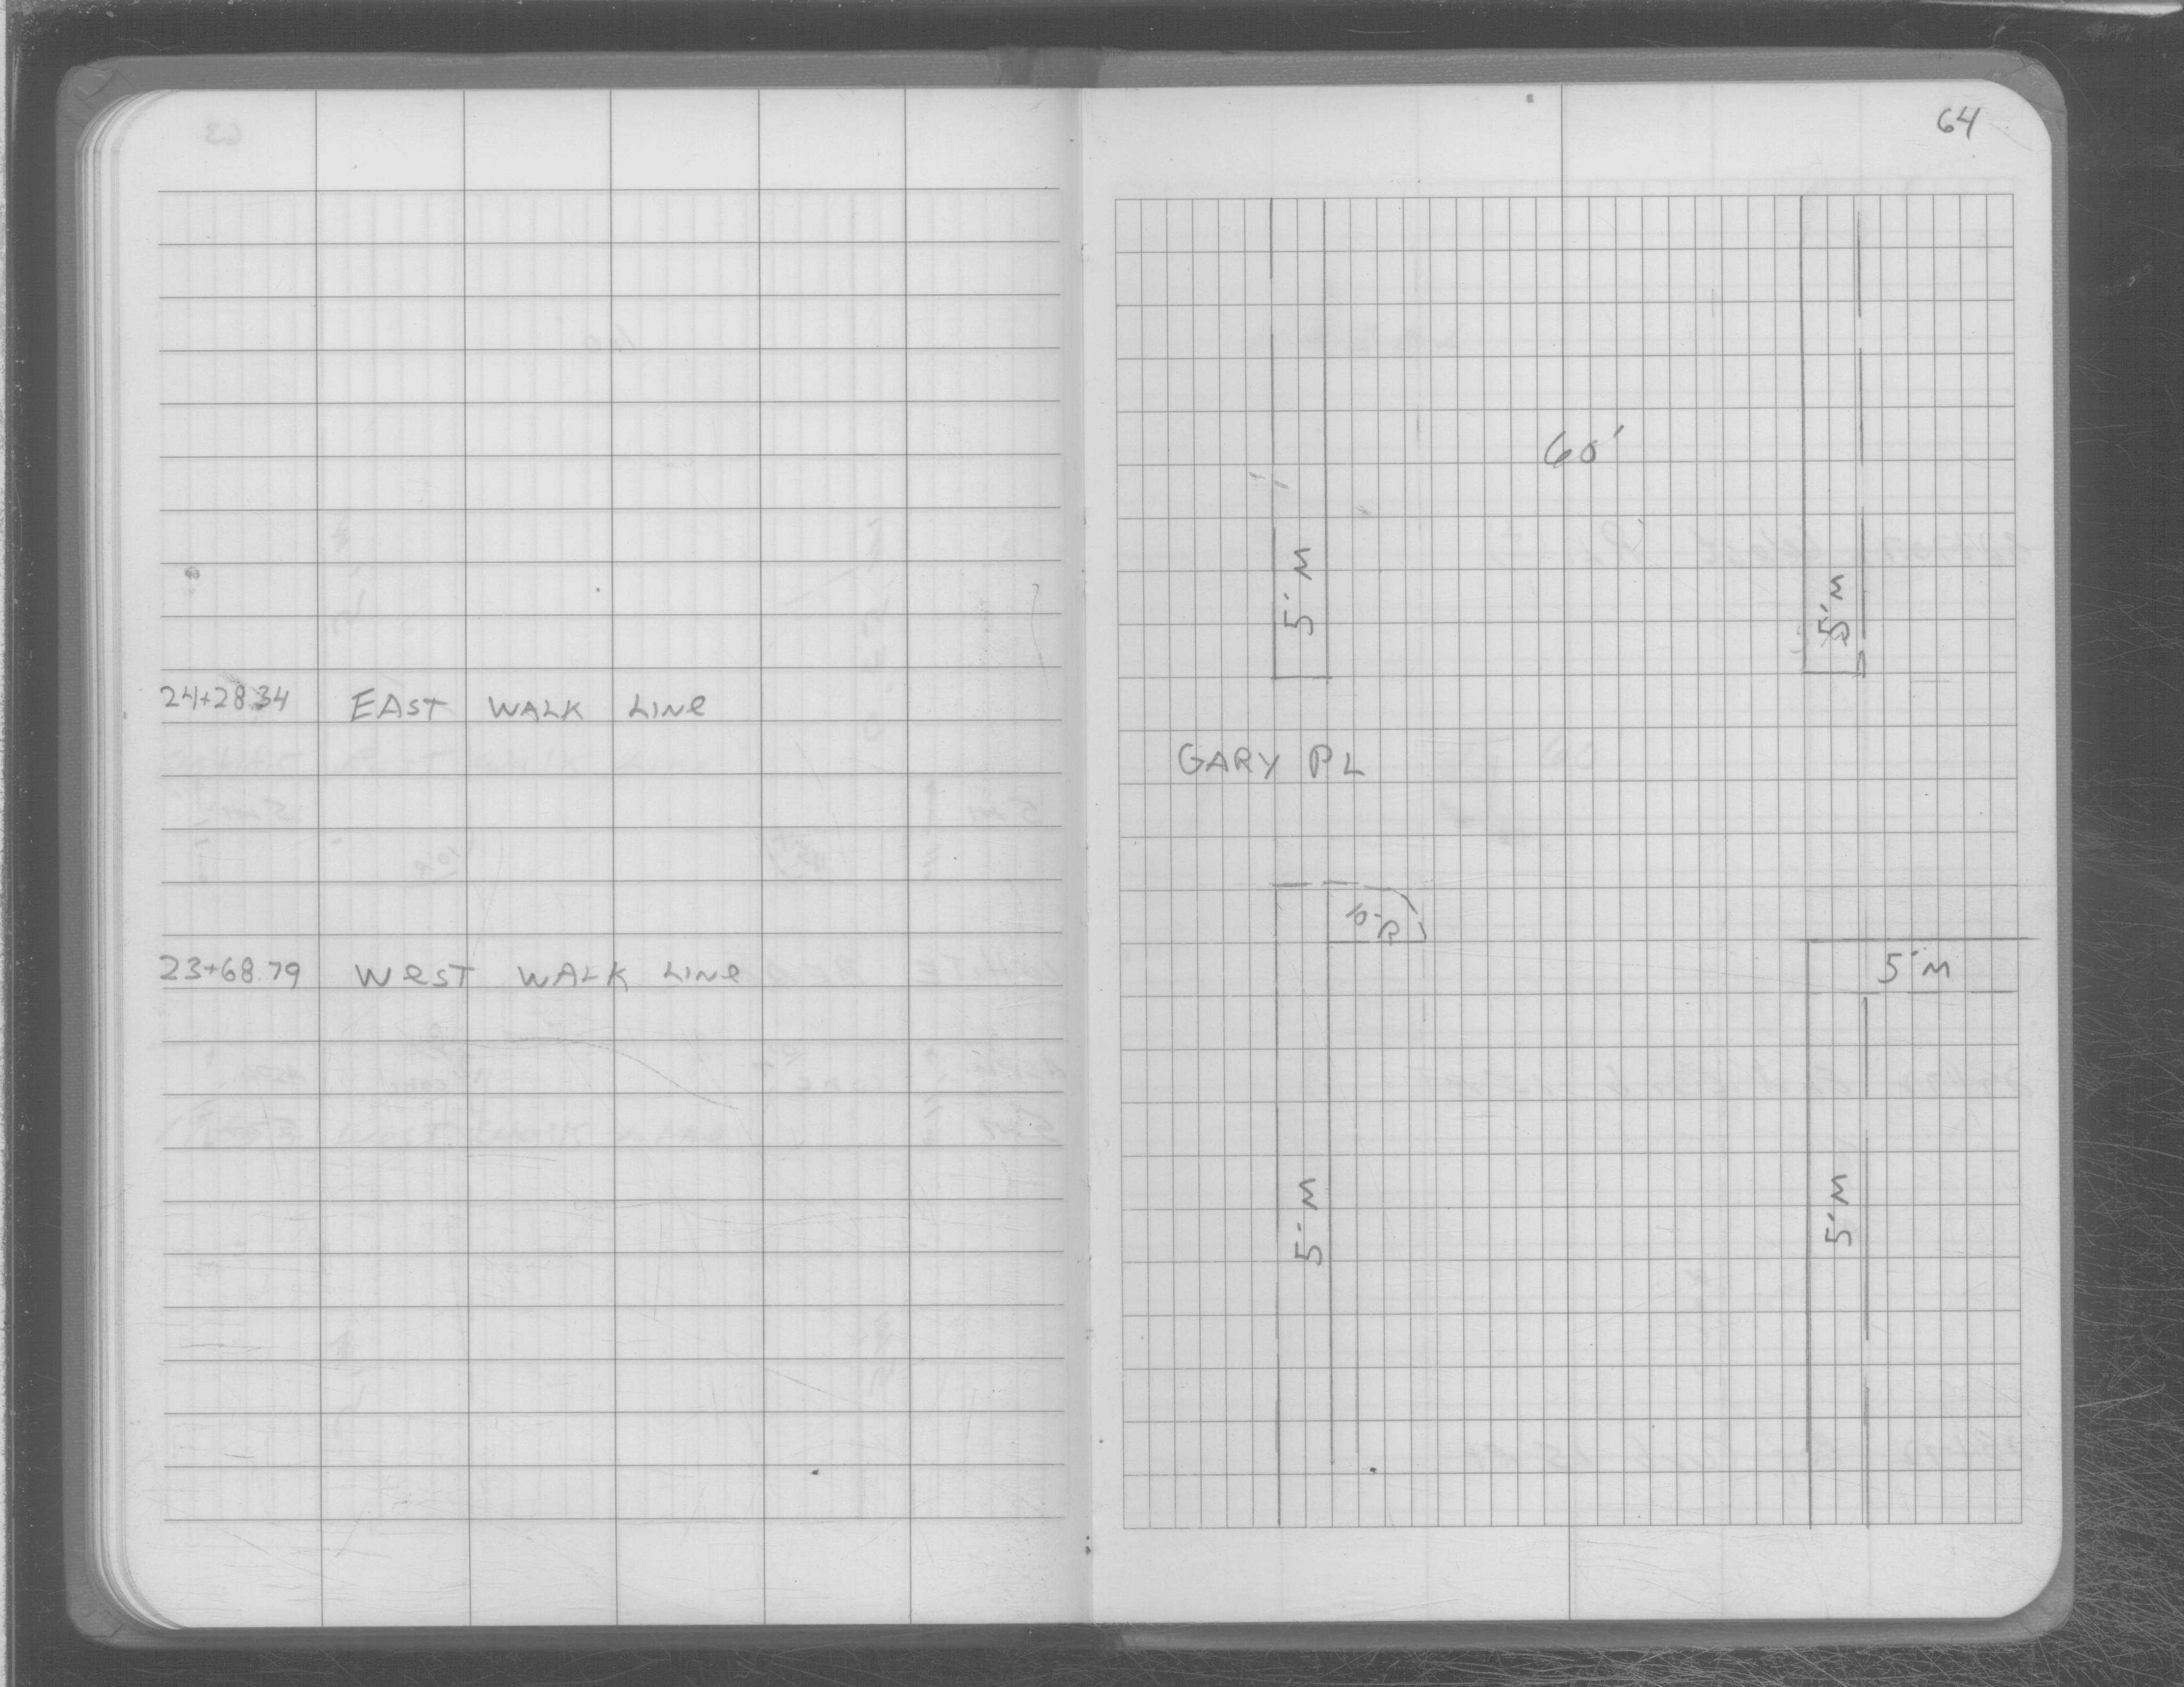 64
60'
5' M
5' M
24+28.34 EAST WALK LINE
GARY PL
23+68.79 WEST WALK LINE
5' M
5' M
5' M